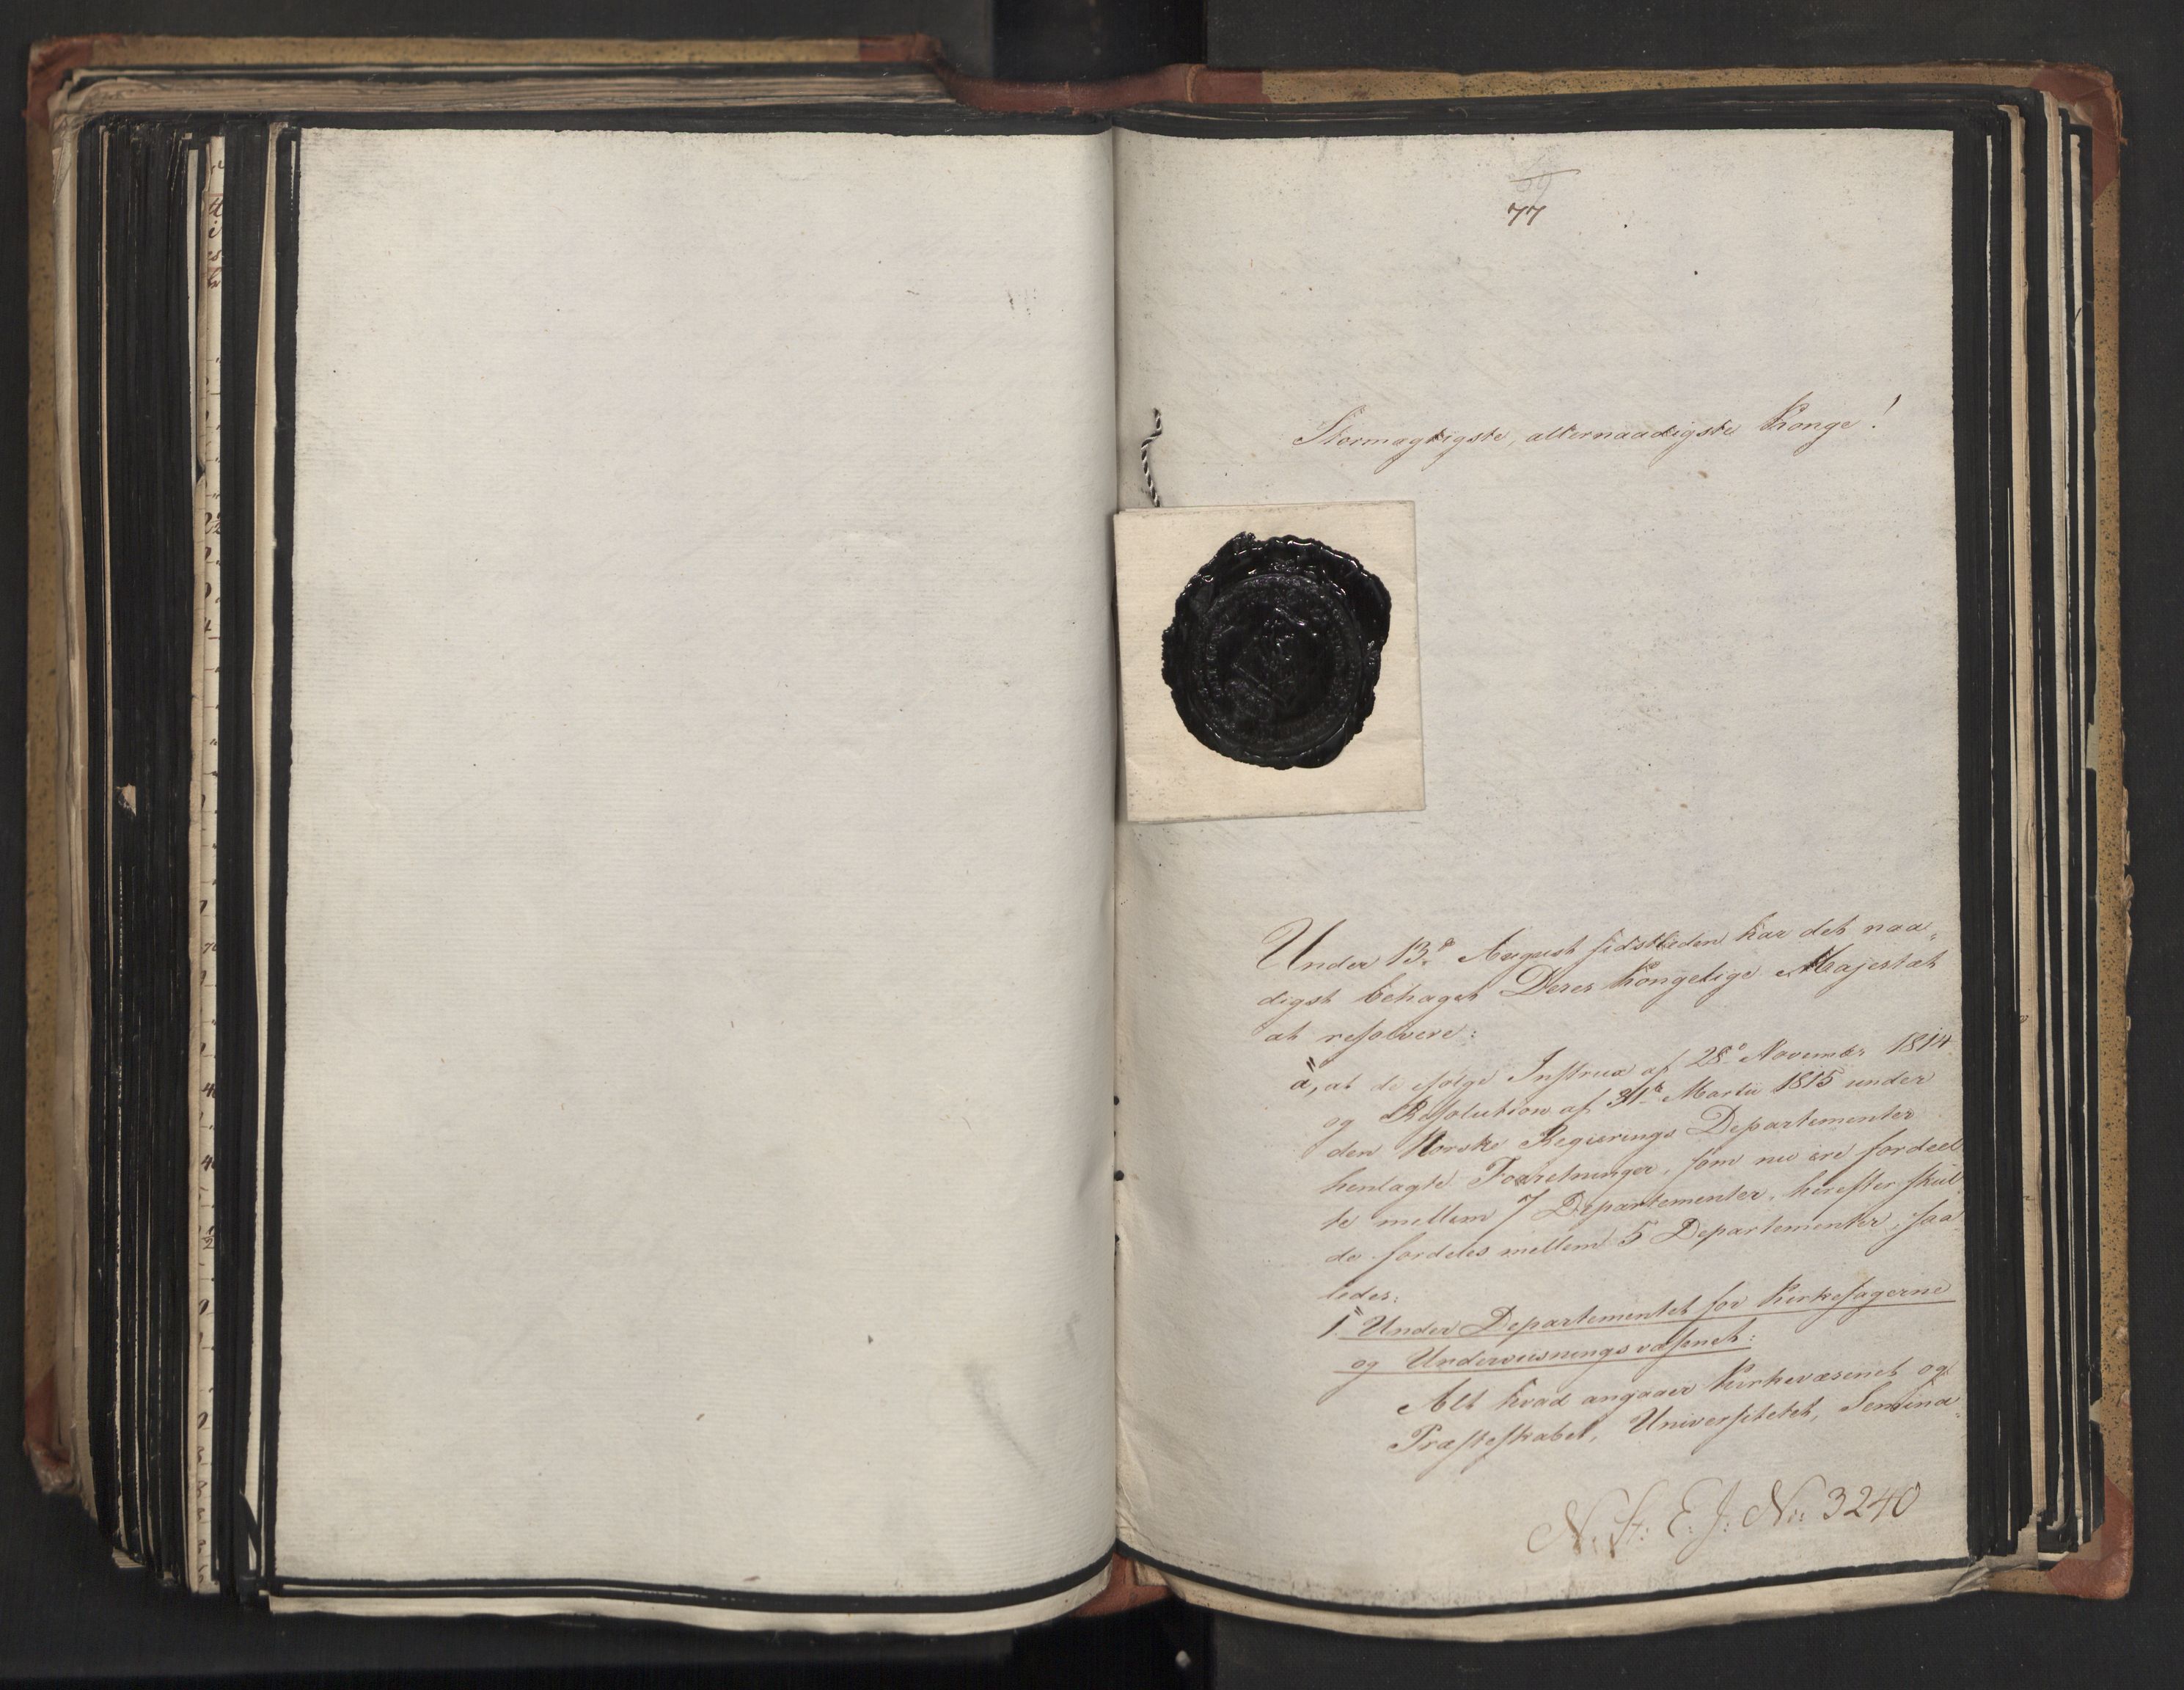 69
77
Stormægtigste, allernaadigste Konge!
Under 13de August sidstleden har det naa„
digst behaget Deres Kongelige Majestæt
at resolvere:
a, at de ifølge Instrux af 28de November 1814
og Resolution af 31te Martii 1815 under
den Norske Regierings Departementer
henlagte Forretninger, som nu ere fordeel„
te mellem 7 Departementer, herefter skul„
de fordeles mellem 5 Departementer, saa„
ledes:
1. Under Departementet for Kirkesagerne
og Underviisningsvæsenet:
Alt hvad angaaer Kirkevæsenet og
Præsteskabet, Universitetet, Semina„
N. St: E: J: No: 3240